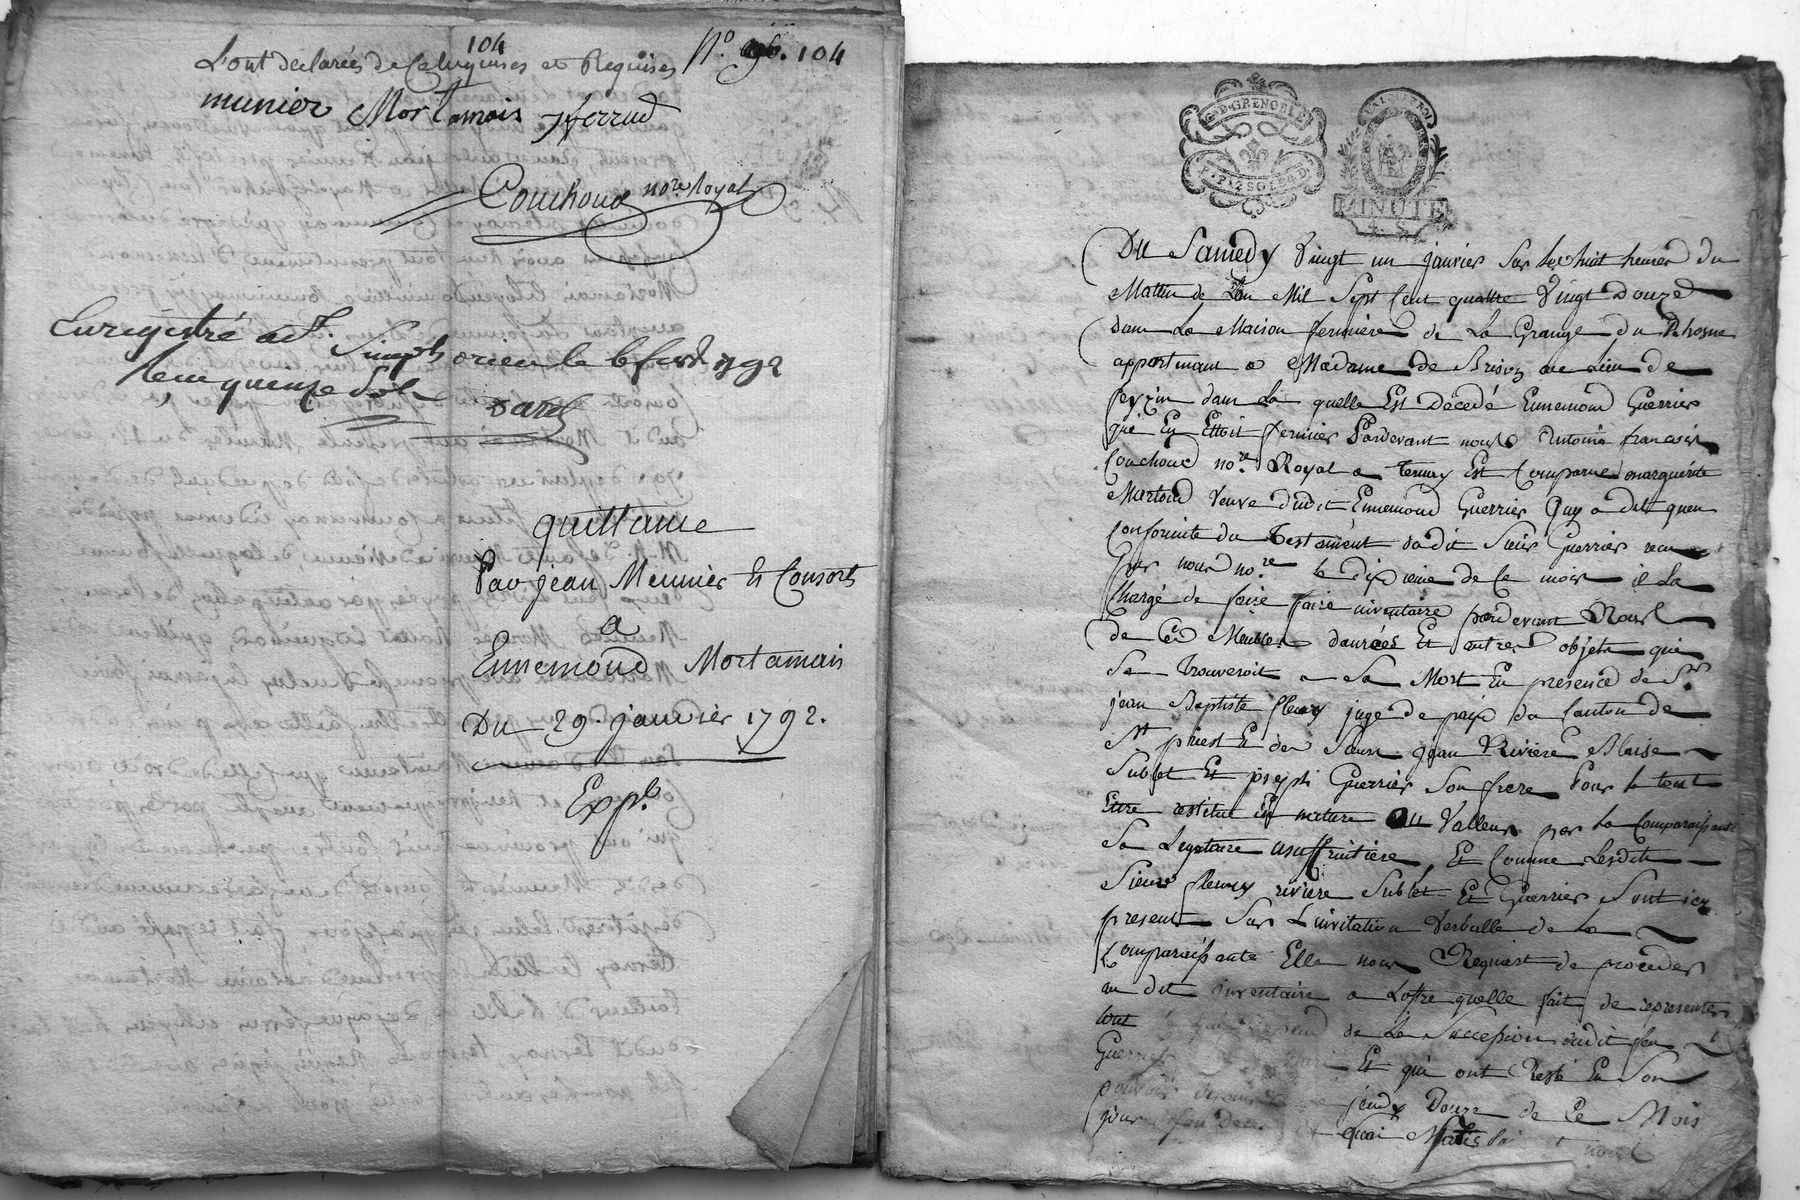 104
L'ont declarées de Ce Enquises et Requises
N.º 96. 104
munier Mortamais jferrud
Couchoud no.re royal
Enregistré a St. Simphorien le 6 fevr 1792
quinze Sols
Darel
quittance
Par jean Meunier Et Consorts
a
Ennemond Mortamais
Du 29. janvier 1792.
Exp.
G. D. GRENOBLE
P. P. 2 SOLS 4 D.
MINUTE
Du Samedy Vingt un janvier Sur les huit heures du
Matin de L'an Mil Sept Cent quattre Vingt Douze
dans La Maison fermiere de La Grange du Rhosne
appartenant a Madame de Brison au Lieu de
feyzin dans La quelle Est Décédé Ennemond Guerrier
qui En Ettoit fermier Pardevant nous Antoine françois
Couchoud no.re Royal a Ternay Est Comparue marguerite
Martoud Veuve dudit Ennemond Guerrier Quy a dit quen
Conformité du Testament dudit Sieur Guerrier recu
Par nous no.re le dixieme de Ce mois il La
Chargé de faire faire inventaire pardevant Nous
de Ces Meubles danrées Et autres objets qui
Se Trouveroit a Sa Mort En presence de Sr.
jean Baptiste fleury juge de paix du Canton de
St priest Et des Sieurs jean Riviere Blaise
Sublet Et joseph Guerrier Son frere Pour le tout
Etre restitué En nature Ou Valleur par la Comparaissante
Sa Legataire usuffruitiere, Et Comme Lesdits
Sieurs fleury riviere Sublet Et Guerrier Sont icy
present Sur L'invitation Verballe de La
Comparaissante Elle nous Requiert de proceder
au dit inventaire a Loffre quelle fait de representer
tout de La Succession dudit feu
Guerrier Et qui ont Resté En Son
pouvoir jeudy Douze de Ce Mois
jour quoi